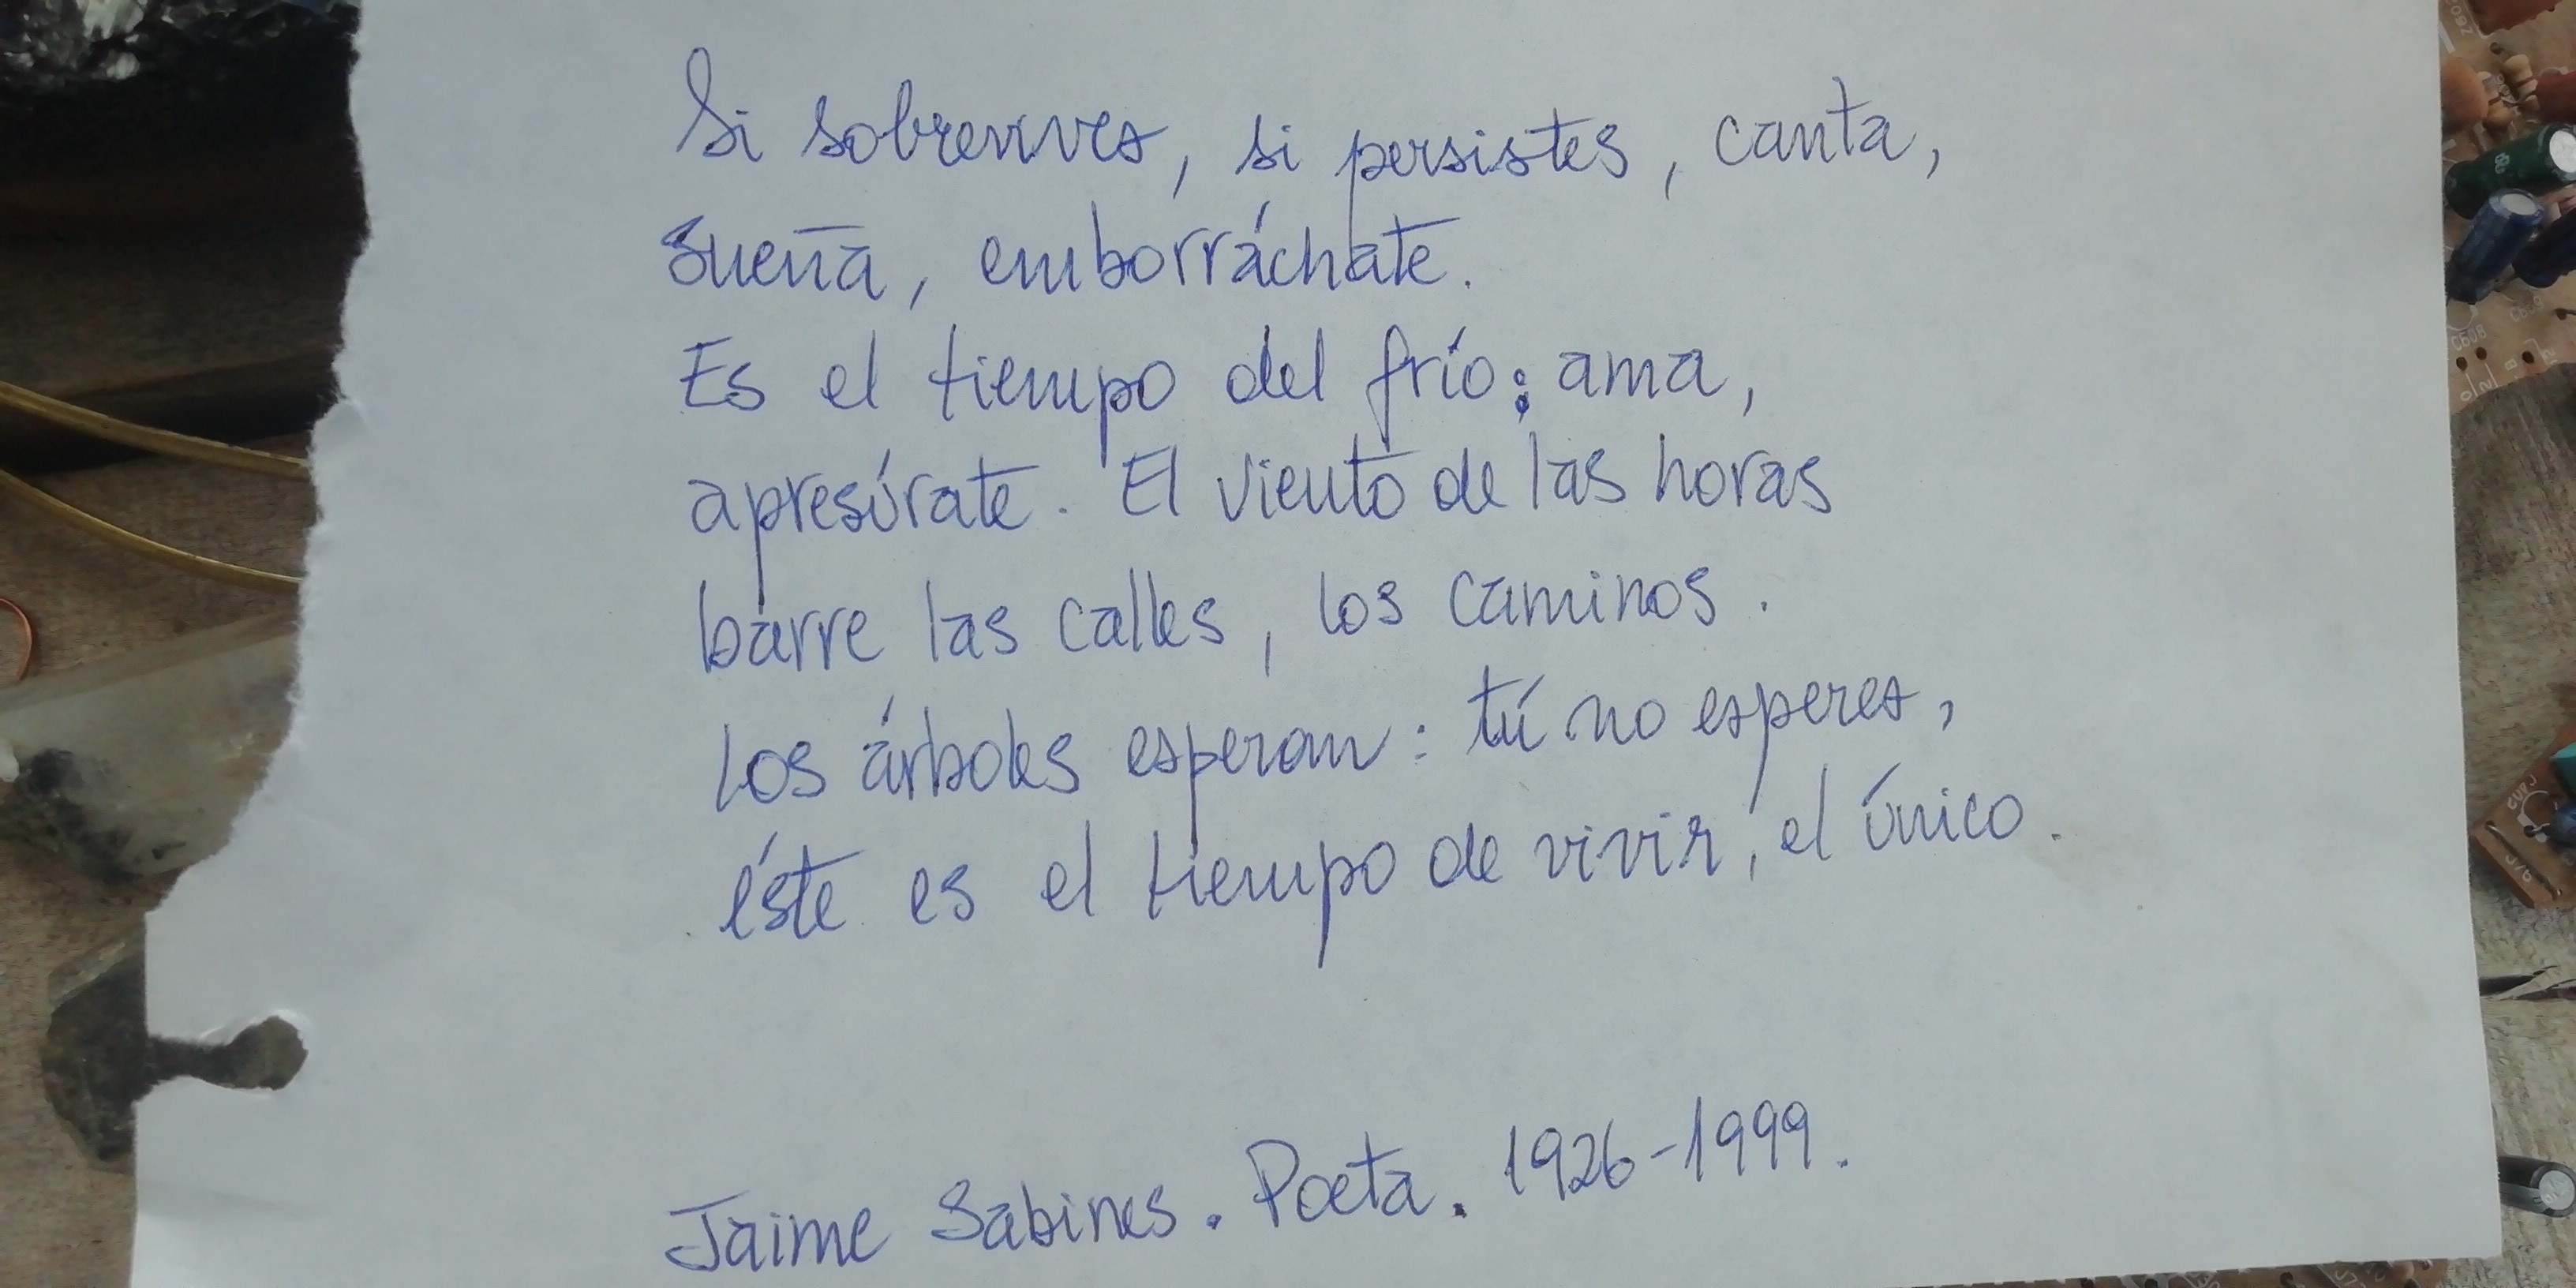 Si sobrevives, si persistes, canta,
sueña, emborráchate.
Es el tiempo del frío: ama,
apresúrate. El viento de las horas
barre las calles, los caminos.
Los árboles esperan: tú no esperes,
éste es el tiempo de vivir, el único.
Jaime Sabines. Poeta. 1926-1999.
C60B